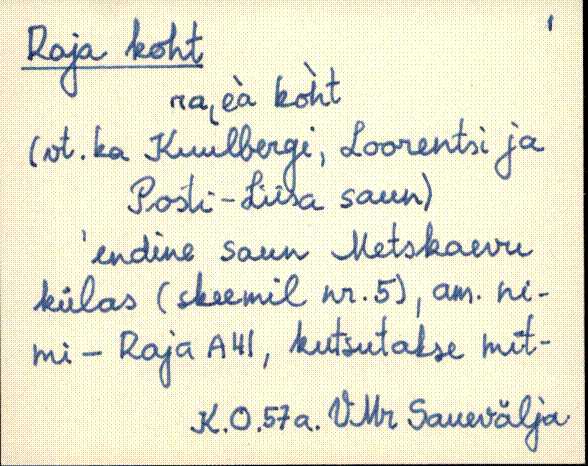 1
Raja koht
ra(eà kòht
(vt. ka Kuulbergi, Loorentsi ja
Posti-Liisa saun)
'endine saun Metskaevu
külas (skeemil nr. 5), am. ni-
mi - Raja A 41, kutsutakse mit-
K.O. 57a. VMr Sauevälja